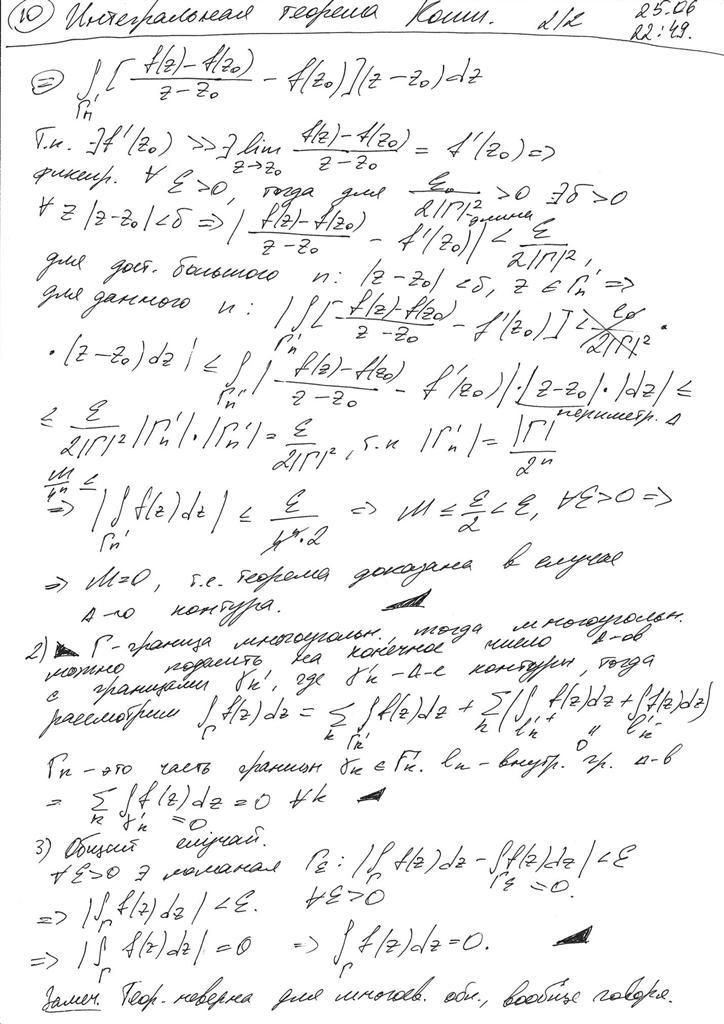 10 Интегральная теорема Коши. 2/2 25.06 22:49.
⊜ ∫_{Γn'} [ (f(z)-f(z₀))/(z-z₀) - f(z₀) ](z-z₀)dz
Т.к. ∃f'(z₀) >> ∃ lim_{z→z₀} (f(z)-f(z₀))/(z-z₀) = f'(z₀) =>
фиксир. ∀ ε>0, тогда для ε₀/(2|Γ|²) >0 ∃δ>0
длина
∀ z |z-z₀|<δ => | (f(z)-f(z₀))/(z-z₀) - f'(z₀)| < ε/(2|Γ|²),
для дост. большого n: |z-z₀|<δ, z∈Γn' =>
для данного n: |∫_{Γn'} [ (f(z)-f(z₀))/(z-z₀) - f'(z₀)] ·
·(z-z₀)dz| ≤ ∫_{Γn'} | (f(z)-f(z₀))/(z-z₀) - f'(z₀)|·|z-z₀|·|dz| ≤
периметр. Δ
≤ ε/(2|Γ|²) |Γn'|·|Γn'| = ε/(2|Γ|²), т.к |Γn'| = |Γ|/2ⁿ
M/4ⁿ ≤
=> |∫_{Γn'} f(z)dz| ≤ ε/(4ⁿ·2) => M ≤ ε/2 < ε, ∀ε>0 =>
=> M=0, т.е. теорема доказана в случае
Δ-го контура. ◢
2) ◣ Γ-граница многоугольн., тогда многоугольн.
можно поделить на конечное число Δ-ов
с границами γk', где γk'-Δ-е контуры, тогда
рассмотрим ∫_Γ f(z)dz = Σ_k ∫_{Γk'} f(z)dz + Σ_k (∫_{lk'⁺} f(z)dz + ∫_{lk'⁻} f(z)dz)
0
Γk - это часть границы γk ∈ Γk'. lk - внутр. гр. Δ-в
= Σ_k ∫_{γk'} f(z)dz = 0 ∀k ◢
=0
3) Общий случай.
∀ε>0 ∃ ломаная Γε: |∫_Γ f(z)dz - ∫_{Γε} f(z)dz| < ε
=0.
=> |∫_Γ f(z)dz| < ε. ∀ε>0
=> |∫_Γ f(z)dz| = 0 => ∫_Γ f(z)dz=0. ◢
Замеч. Теор. неверна для многосв. обл., вообще говоря.